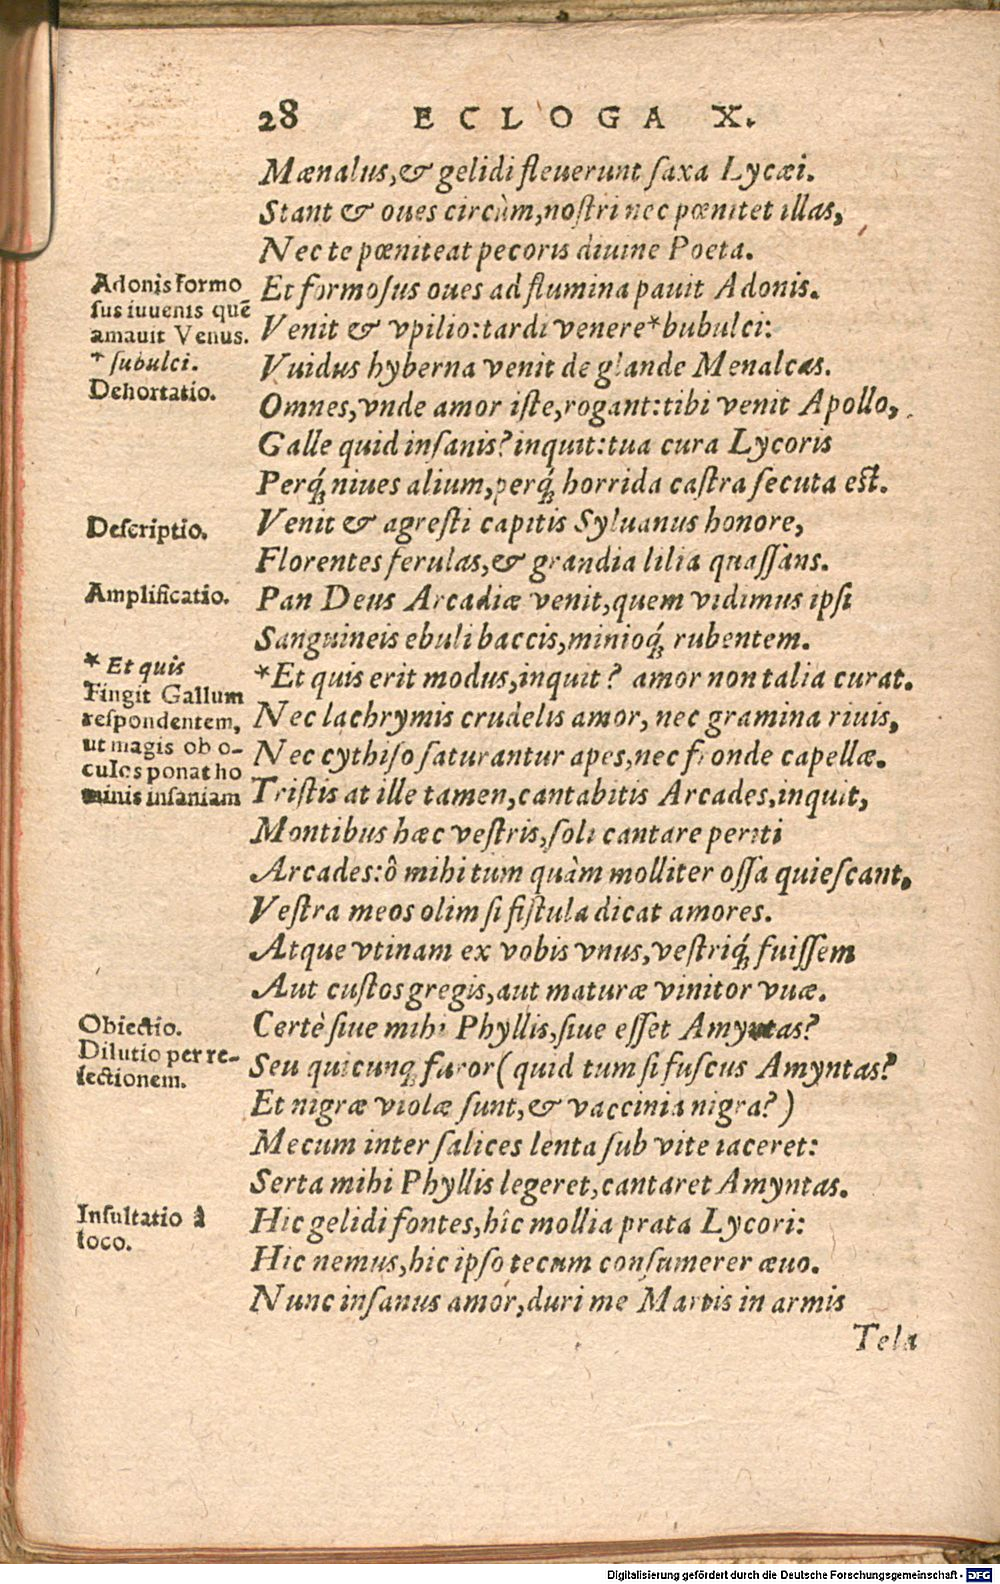 28 ECLOGA X.
Mænalus, & gelidi fleuerunt ſaxa Lycæi.
Stant & oues circùm, noſtri nec pœnitet illas,
Nec te pœniteat pecoris diuine Poeta.
Et formoſus oues ad flumina pauit Adonis.
Venit & vpilio: tardi venere *bubulci:
Vuidus hyberna venit de glande Menalcas.
Omnes, vnde amor iſte, rogant: tibi venit Apollo,
Galle quid inſanis? inquit: tua cura Lycoris
Perq́; niues alium, perq́; horrida caſtra ſecuta eſt.
Venit & agreſti capitis Syluanus honore,
Florentes ferulas, & grandia lilia quaſſans.
Pan Deus Arcadiæ venit, quem vidimus ipſi
Sanguineis ebuli baccis, minioq́; rubentem.
*Et quis erit modus, inquit? amor non talia curat.
Nec lachrymis crudelis amor, nec gramina riuis,
Nec cythiſo ſaturantur apes, nec fronde capellæ.
Triſtis at ille tamen, cantabitis Arcades, inquit,
Montibus hæc veſtris, ſoli cantare periti
Arcades: ô mihi tum quàm molliter oſſa quieſcant,
Veſtra meos olim ſi fiſtula dicat amores.
Atque vtinam ex vobis vnus, veſtriq́; fuiſſem
Aut cuſtos gregis, aut maturæ vinitor vuæ.
Certè ſiue mihi Phyllis, ſiue eſſet Amyntas?
Seu quicunq; furor (quid tum ſi fuſcus Amyntas?
Et nigræ violæ ſunt, & vaccinia nigra?)
Mecum inter ſalices lenta ſub vite iaceret:
Serta mihi Phyllis legeret, cantaret Amyntas.
Hic gelidi fontes, hîc mollia prata Lycori:
Hic nemus, hic ipſo tecum conſumerer æuo.
Nunc inſanus amor, duri me Martis in armis
Tela
Adonis formo
ſus iuuenis quẽ
amauit Venus.
* ſubulci.
Dehortatio.
Deſcriptio.
Amplificatio.
* Et quis
Fingit Gallum
reſpondentem,
ut magis ob o-
culos ponat ho
minis inſaniam
Obiectio.
Dilutio per re-
iectionem.
Inſultatio à
loco.
Digitalisierung gefördert durch die Deutsche Forschungsgemeinschaft - DFG